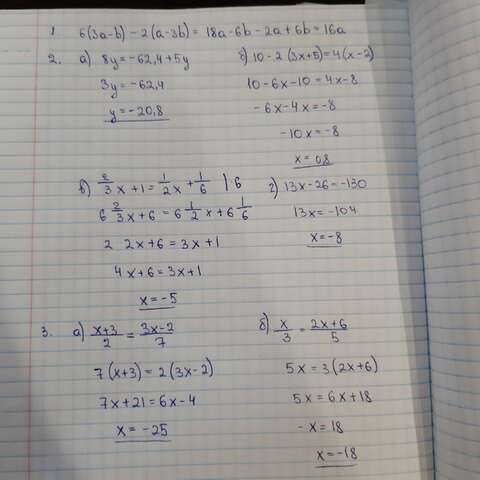 1. 6(3a-b) - 2(a-3b) = 18a-6b - 2a + 6b = 16a
2. а) 8y = -62,4 + 5y
3y = -62,4
y = -20,8
б) 10 - 2(3x+5) = 4(x-2)
10 - 6x - 10 = 4x - 8
-6x - 4x = -8
-10x = -8
x = 0,8
в) 2/3 x + 1 = 1/2 x + 1/6 | · 6
6 2/3 x + 6 = 6 1/2 x + 6 1/6
2 2x + 6 = 3x + 1
4x + 6 = 3x + 1
x = -5
г) 13x - 26 = -130
13x = -104
x = -8
3. а) (x+3)/2 = (3x-2)/7
7(x+3) = 2(3x-2)
7x + 21 = 6x - 4
x = -25
б) x/3 = (2x+6)/5
5x = 3(2x+6)
5x = 6x + 18
-x = 18
x = -18